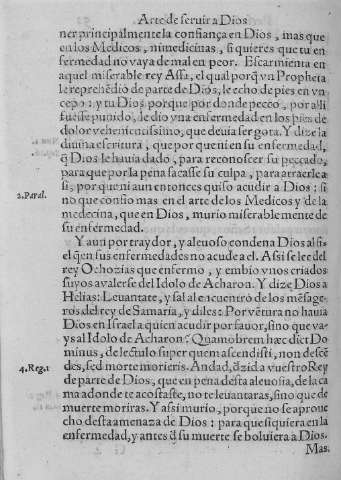 Arte de seruir a Dios
ner principalmente la confiança en Dios, mas que
en los Medicos, ni medicinas, si quieres que tu en
fermedad no vaya de mal en peor. Escarmienta en
aquel miserable rey Assa, el qual porq̃ vn Propheta
le reprehẽdio de parte de Dios, le echo de pies en vn
cepo: y tu Dios porque por donde pecco, por alli
fuesse punido, le dio vna enfermedad en los pies de
dolor vehementissimo, que deuia ser gota. Y dize la
diuina escritura, que por que ni en su enfermedad,
q̃ Dios le hauia dado, para reconoscer su peccado,
para que por la pena sacasse su culpa, para atraerle a
si, por que ni aun entonces quiso acudir a Dios: si
2. Paral.
no que confio mas en el arte de los Medicos y de la
medecina, que en Dios, murio miserablemente de
su enfermedad.
Y aun por traydor, y aleuoso condena Dios al si
el q̃ en sus enfermedades no acude a el. Assi se lee del
rey Ochozias que enfermo, y embio vnos criados
suyos a valerse del Idolo de Acharon. Y dize Dios a
Helias: Leuantate, y sal al encuẽtro de los mẽsage
ros del rey de Samaria, y diles: Por vẽtura no hauia
Dios en Israel a quien acudir por fauor, sino que va-
ys al Idolo de Acharon? Quamobrem hæc dicit Do
minus, de lectulo super quem ascendisti, non descẽ
4. Reg. 1
des, sed morte morieris. Andad, dezid a vuestro Rey
de parte de Dios, que en pena desta aleuosia, de la ca
ma adonde te acostaste, no te leuantaras, sino que de
muerte moriras. Y assi murio, porque no se aproue
cho desta amenaza de Dios: para que siquiera en la
enfermedad, y antes q̃ su muerte se boluiera a Dios.
Mas.